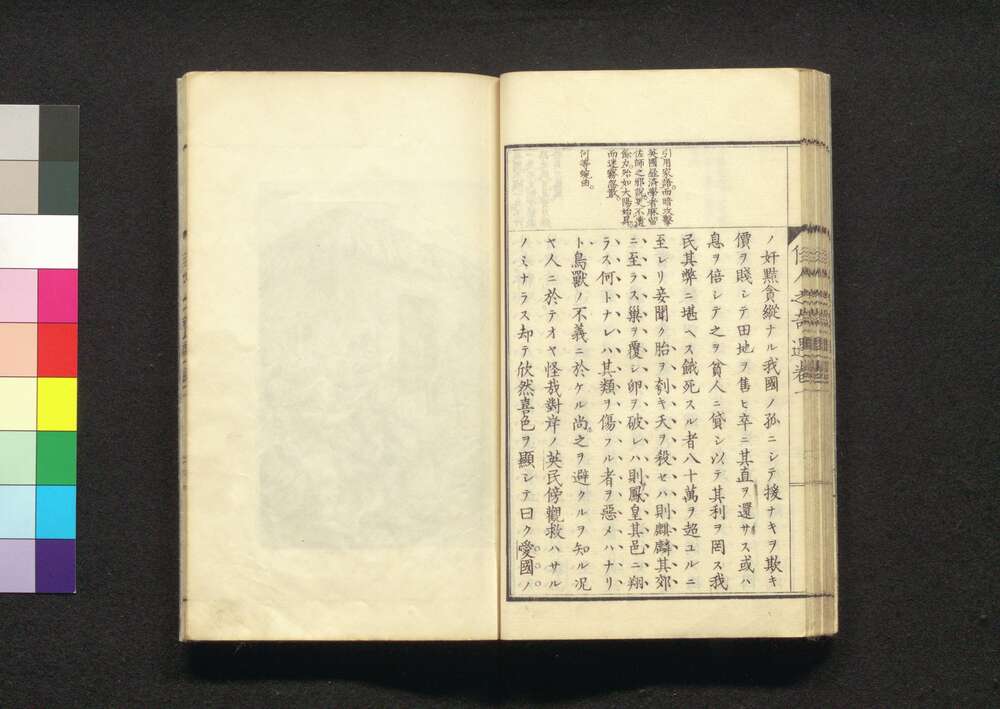 引用家語。而暗攻擊
英國経済學者麻留
佐師之邪説。更不遺
餘力。殆如大陽始昇。
而迷霧忽散。
何等婉曲。
ノ奸黠貪縱ナル我國ノ孤ニシテ援ナキヲ欺キ
價ヲ賤シテ田地ヲ售ヒ卒ニ其直ヲ還サス或ハ
息ヲ倍シテ之ヲ貧人ニ貸シ以テ其利ヲ罔ス我
民其弊ニ堪ヘス餓死スル者八十萬ヲ超ユルニ
至レリ妾聞ク胎ヲ刳キ夭ヲ殺セハ則麒麟其郊
ニ至ラス巣ヲ覆シ卵ヲ破レハ則鳳皇其邑ニ翔
ラス何トナレハ其類ヲ傷フル者ヲ惡メハナリ
ト鳥獸ノ不義ニ於ケル尚之ヲ避クルヲ知ル况
ヤ人ニ於テオヤ怪哉對岸ノ英民傍觀救ハサル
ノミナラス却テ欣然喜色ヲ顯シテ曰ク愛國ノ
佳人之奇遇卷一